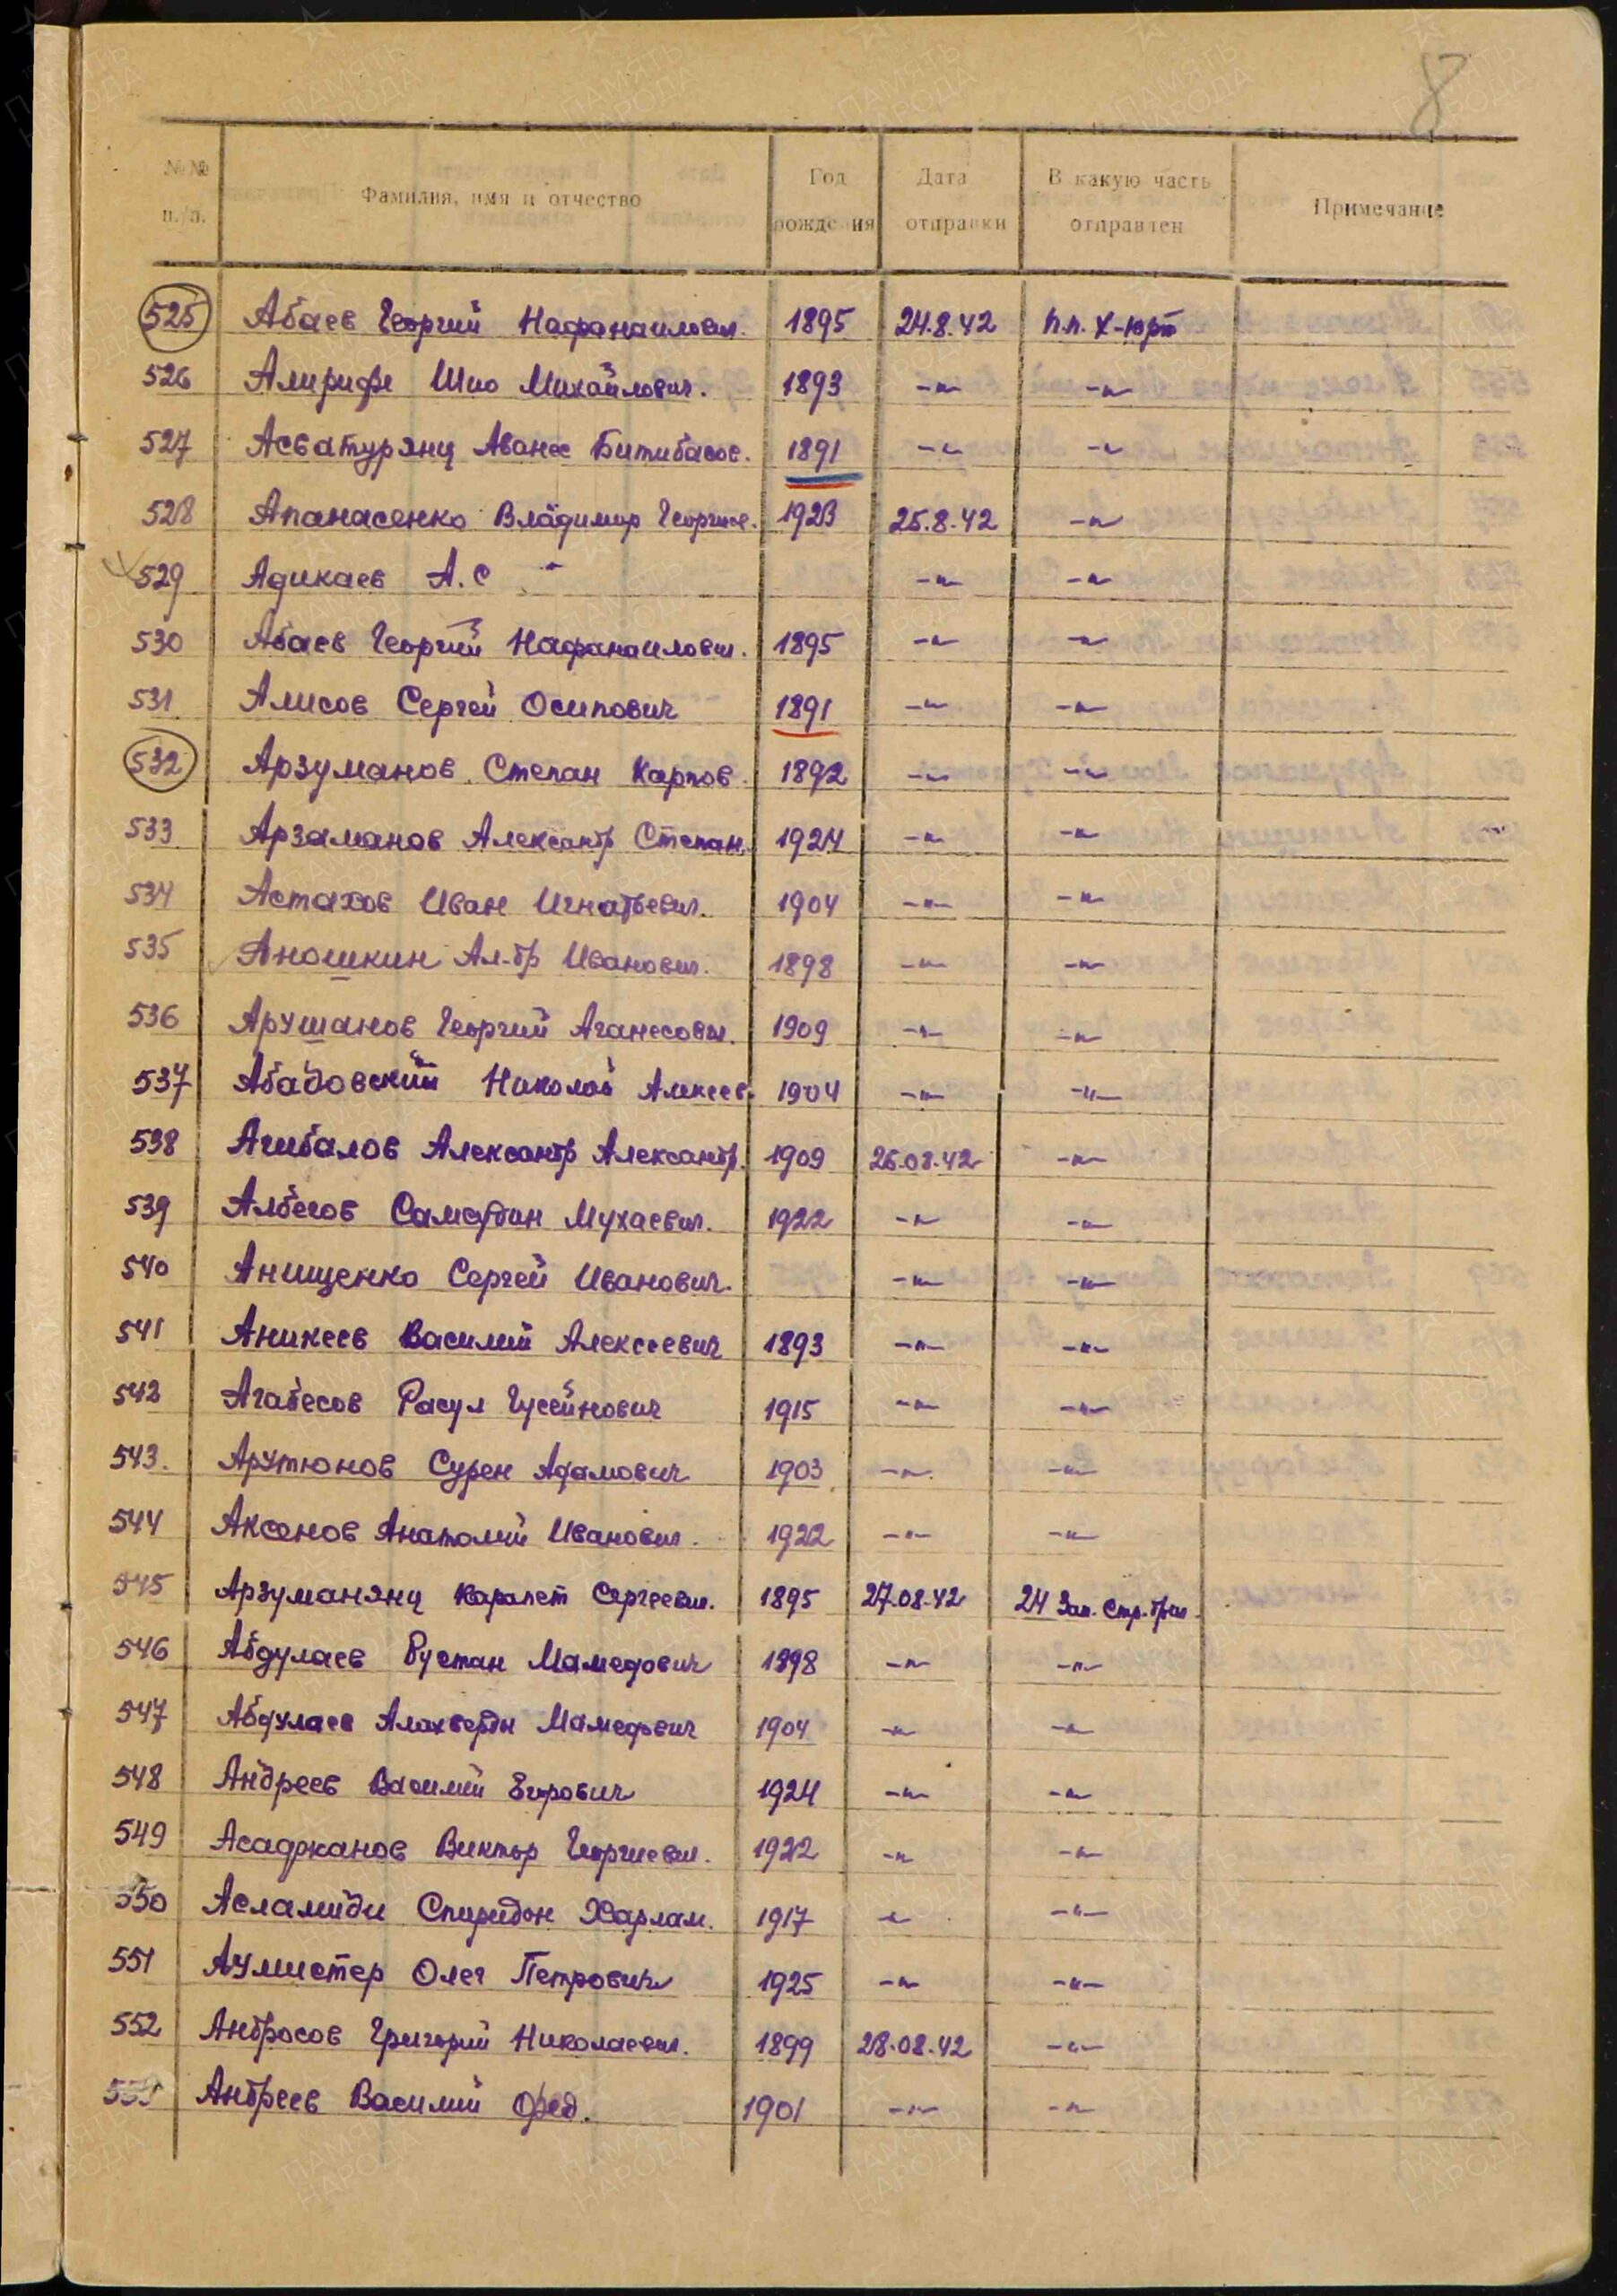 8
№№ п./п. Фамилия, имя и отчество Год рождения Дата отправки В какую часть отправлен Примечание
525 Абаев Георгий Нафанаилович. 1895 24.8.42 п.п. Х-Юрт
526 Шио Михайлович. 1893 -"- -"-
527 Асватурянц Аванес 1891 -"- -"-
528 Апанасенко Владимир Георгиев. 1923 25.8.42 -"-
529 Адикаев А.С -"- -"-
530 Абаев Георгий Нафанаилович. 1895 -"- -"-
531 Алисов Сергей Осипович 1891 -"- -"-
532 Арзуманов Степан Карпов. 1892 -"- -"-
533 Арзаманов Александр Степан. 1924 -"- -"-
534 Астахов Иван Игнатьевич. 1904 -"- -"-
535 Аношкин Ал-др Иванович. 1898 -"- -"-
536 Арушанов Георгий Аганесович. 1909 -"- -"-
537 Абадовский Николай Алексеев. 1904 -"- -"-
538 Агибалов Александр Александр. 1909 26.08.42 -"-
539 Албегов Мухаевич. 1922 -"- -"-
540 Анищенко Сергей Иванович. -"- -"-
541 Аникеев Василий Алексеевич 1893 -"- -"-
542 Агабесов Расул Гусейнович 1915 -"- -"-
543. Арутюнов Сурен Адамович 1903 -"- -"-
544 Аксенов Анатолий Иванович. 1922 -"- -"-
545 Арзуманянц Карапет Сергеевич. 1895 27.08.42 24 Зап. Стр. бриг.
546 Абдулаев Рустан Мамедович 1898 -"- -"-
547 Абдулаев Алахверди Мамедович 1904 -"- -"-
548 Андреев Василий Егорович 1924 -"- -"-
549 Асаджанов Виктор Георгиевич. 1922 -"- -"-
550 Асламиди Спиридон Харлам. 1917 -"- -"-
551 Аумистер Олег Петрович 1925 -"- -"-
552 Амбросов Григорий Николаевич. 1899 28.08.42 -"-
553 Андреев Василий Фед. 1901 -"- -"-